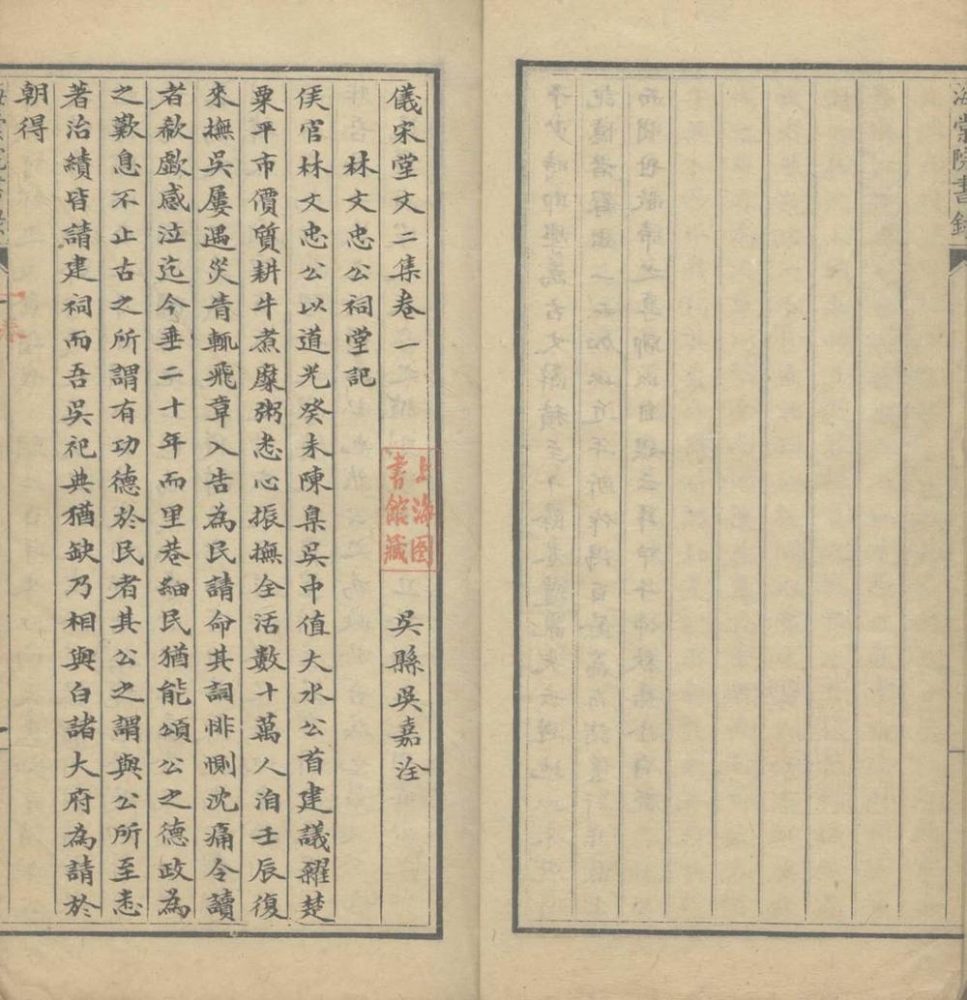 海棠院書錄
儀宋堂文二集卷一
吳縣吳嘉洤
上海图
書館藏
林文忠公祠堂記
侯官林文忠公以道光癸未陳臬吳中值大水公首建議糴楚
粟平市價質耕牛煮糜粥恚心振撫全活數十萬人洎壬辰復
來撫吳屢遇災眚輒飛章入告為民請命其詞悱惻沈痛令讀
者欷歔感泣迄今垂二十年而里巷細民猶能頌公之德政為
之歎息不止古之所謂有功德於民者其公之謂與公所至恚
著治績皆請建祠而吾吳祀典猶缺乃相與白諸大府為請於
朝得